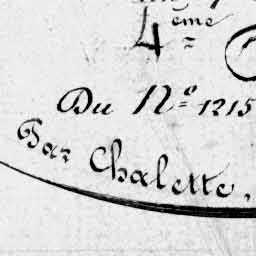 4ème
Du N° 1215
Par Chalette,